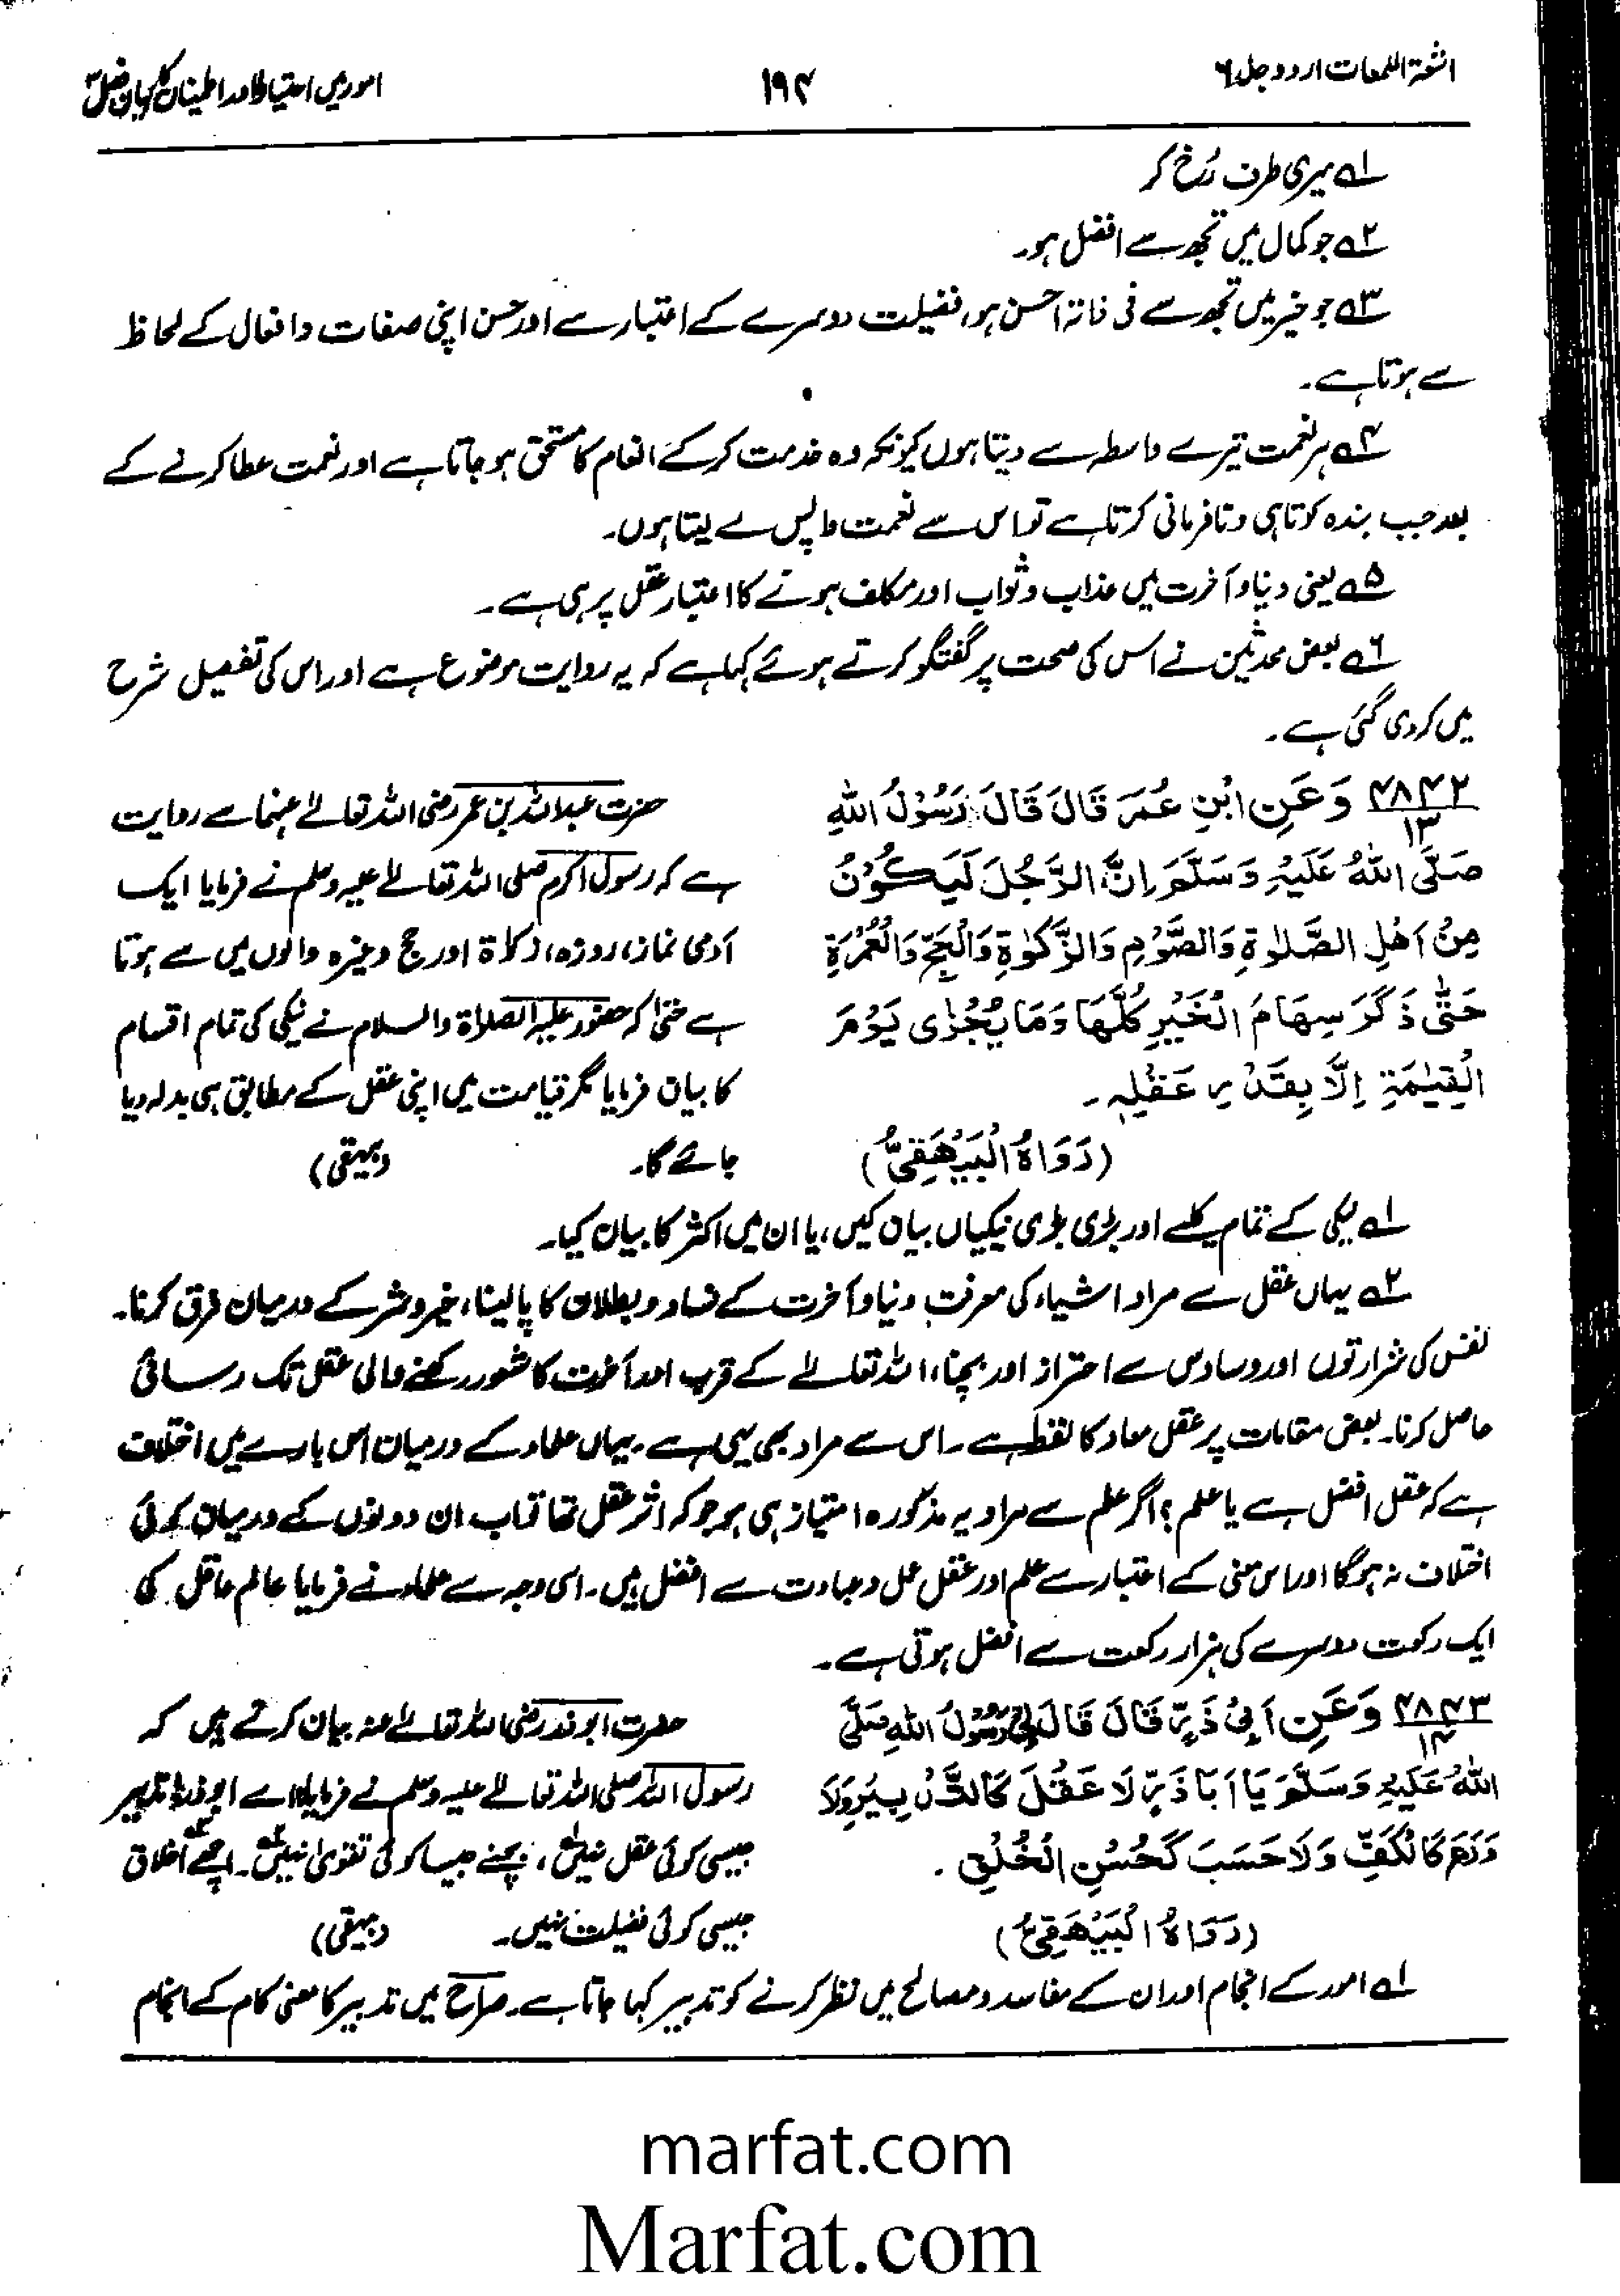 اشعۃ اللمعات اردو جلد ۶
۱۹۴
امور میں احتیاط اور اطمینان کا بیان فصل ۳
۱؎ میری طرف رُخ کر
۲؎ جو کمال میں تجھ سے افضل ہو۔
۳؎ جو خیر میں تجھ سے فی ذاتہٖ احسن ہو، فضیلت دوسرے کے اعتبار سے اور حسن اپنی صفات و افعال کے لحاظ
سے ہوتا ہے۔
۴؎ ہر نعمت تیرے واسطہ سے دیتا ہوں کیونکہ وہ خدمت کرکے انعام کا مستحق ہو جاتا ہے اور نعمت عطا کرنے کے
بعد جب بندہ کوتاہی و نافرمانی کرتا ہے تو اس سے نعمت واپس لے لیتا ہوں۔
۵؎ یعنی دنیا و آخرت میں عذاب و ثواب اور مکلف ہونے کا اعتبار عقل پر ہی ہے۔
۶؎ بعض محدثین نے اس کی صحت پر گفتگو کرتے ہوئے کہا ہے کہ یہ روایت موضوع ہے اور اس کی تفصیل شرح
میں کر دی گئی ہے۔
۴۸۴۲
۱۳
وَعَنِ ابْنِ عُمَرَ قَالَ قَالَ رَسُوْلُ اللهِ
صَلَّی اللهُ عَلَیْہِ وَسَلَّمَ اِنَّ الرَّجُلَ لَیَکُوْنُ
مِنْ اَھْلِ الصَّلٰوۃِ وَالصَّوْمِ وَالزَّکٰوۃِ وَالْحَجِّ وَالْعُمْرَۃِ
حَتّٰی ذَکَرَ سِھَامَ الْخَیْرِ کُلَّھَا وَمَا یُجْزٰی یَوْمَ
الْقِیٰمَۃِ اِلَّا بِقَدْرِ عَقْلِہٖ۔
(رَوَاہُ الْبَیْھَقِیُّ)
حضرت عبداللہ بن عمر رضی اللہ تعالےٰ عنہما سے روایت
ہے کہ رسول اکرم صلی اللہ تعالےٰ علیہ وسلم نے فرمایا ایک
آدمی نماز، روزہ، زکاۃ اور حج وغیرہ والوں میں سے ہوتا
ہے حتیٰ کہ حضور علیہ الصلاۃ والسلام نے نیکی کی تمام اقسام
کا بیان فرمایا مگر قیامت میں اپنی عقل کے مطابق ہی بدلہ دیا
جائے گا۔ (بیہقی)
۱؎ نیکی کے تمام کلیے اور بڑی بڑی نیکیاں بیان کیں، یا ان میں اکثر کا بیان کیا۔
۲؎ یہاں عقل سے مراد اشیاء کی معرفت دنیا و آخرت کے فساد و بطلان کا پا لینا، خیر و شر کے درمیان فرق کرنا۔
نفس کی شرارتوں اور وساوس سے احتراز اور بچنا، اللہ تعالےٰ کے قرب اور آخرت کا شعور رکھنے والی عقل تک رسائی
حاصل کرنا۔ بعض مقامات پر عقل معاد کا لفظ ہے۔ اس سے مراد بھی یہی ہے۔ یہاں علماء کے درمیان اس بارے میں اختلاف
ہے کہ عقل افضل ہے یا علم؟ اگر علم سے مراد یہ مذکورہ امتیاز ہی ہو جو کہ اثر عقل تھا تو اب ان دونوں کے درمیان کوئی
اختلاف نہ ہوگا اور اس معنی کے اعتبار سے علم اور عقل عمل و عبادت سے افضل ہیں۔ اسی وجہ سے علماء نے فرمایا عالم عاقل کی
ایک رکعت دوسرے کی ہزار رکعت سے افضل ہوتی ہے۔
۴۸۴۳
۱۴
وَعَنْ اَبِیْ ذَرٍّ قَالَ قَالَ لِیْ رَسُوْلُ اللهِ صَلَّی
اللهُ عَلَیْہِ وَسَلَّمَ یَا اَبَا ذَرٍّ لَا عَقْلَ کَالتَّدْبِیْرِ وَلَا
وَرَعَ کَالْکَفِّ وَلَا حَسَبَ کَحُسْنِ الْخُلُقِ۔
(رَوَاہُ الْبَیْھَقِیُّ)
حضرت ابوذر رضی اللہ تعالےٰ عنہ بیان کرتے ہیں کہ
رسول اللہ صلی اللہ تعالےٰ علیہ وسلم نے فرمایا اے ابوذر! تدبیر
جیسی کوئی عقل نہیں۱؎، بچنے جیسا کوئی تقویٰ نہیں۲؎۔ اچھے اخلاق۳؎
جیسی کوئی فضیلت نہیں۔ (بیہقی)
۱؎ امور کے انجام اور ان کے مفاسد و مصالح میں نظر کرنے کو تدبیر کہا جاتا ہے۔ صراح میں تدبیر کا معنی کام کے انجام
marfat.com
Marfat.com